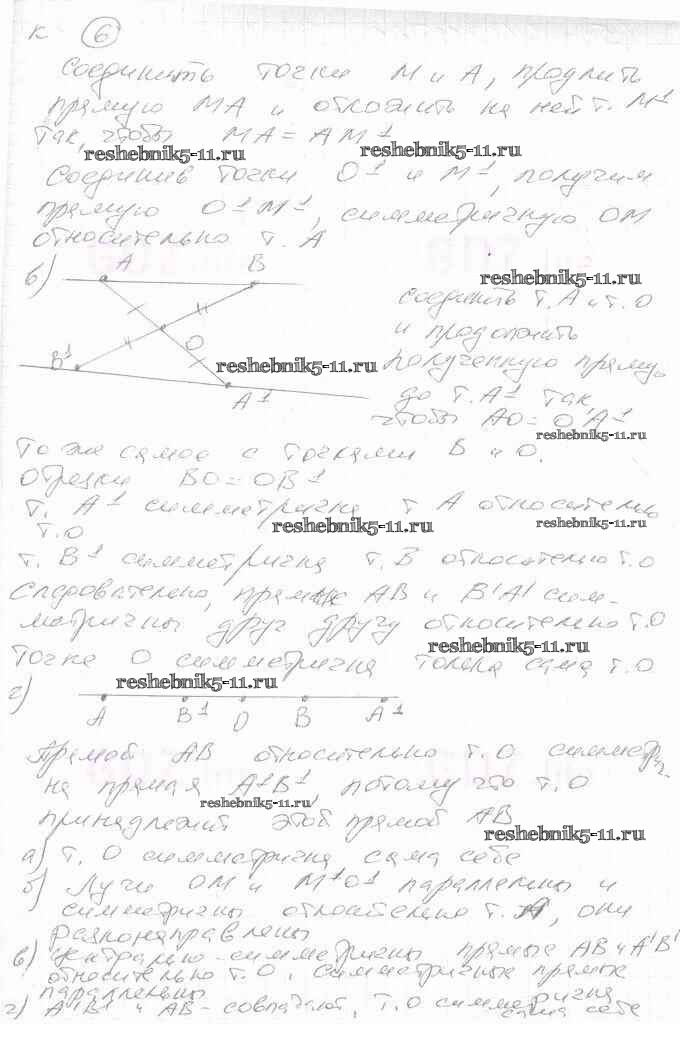 К 6
Соединить точки М и А, продлить
прямую МА и отложить на ней т. М¹
так, чтобы МА = АМ¹
reshebnik5-11.ru reshebnik5-11.ru
Соединив точки О¹ и М¹, получим
прямую О¹М¹, симметричную ОМ
относительно т. А
в) А В
reshebnik5-11.ru
соединить т. А и т. О
и продолжить
О
В¹ reshebnik5-11.ru полученную прямую
А¹ до т. А¹ так,
чтобы АО = О'А¹
reshebnik5-11.ru
То же самое с точками В и О.
Отрезки ВО = ОВ¹
т. А¹ симметрична т А относительно
т.О reshebnik5-11.ru reshebnik5-11.ru
т. В¹ симметрична т. В относительно т.О
Следовательно, прямые АВ и В'А' сим-
метричны друг другу относительно т.О
reshebnik5-11.ru
Точке О симметрична только сама т.О
reshebnik5-11.ru
г) А В¹ О В А¹
Прямой АВ относительно т.О симметрич.
на прямая А¹В¹, потому что т.О
reshebnik5-11.ru
принадлежит этой прямой АВ
reshebnik5-11.ru
а) т. О симметрична сама себе
б) Лучи ОМ и М¹О¹ параллельны и
симметричны относительно т. А, они
разнонаправлены
в) центрально-симметричны прямые АВ и А'В'
относительно т.О, симметричные прямые
параллельны
г) А¹В¹ и АВ - совпадают, т.О симметрична
сама себе